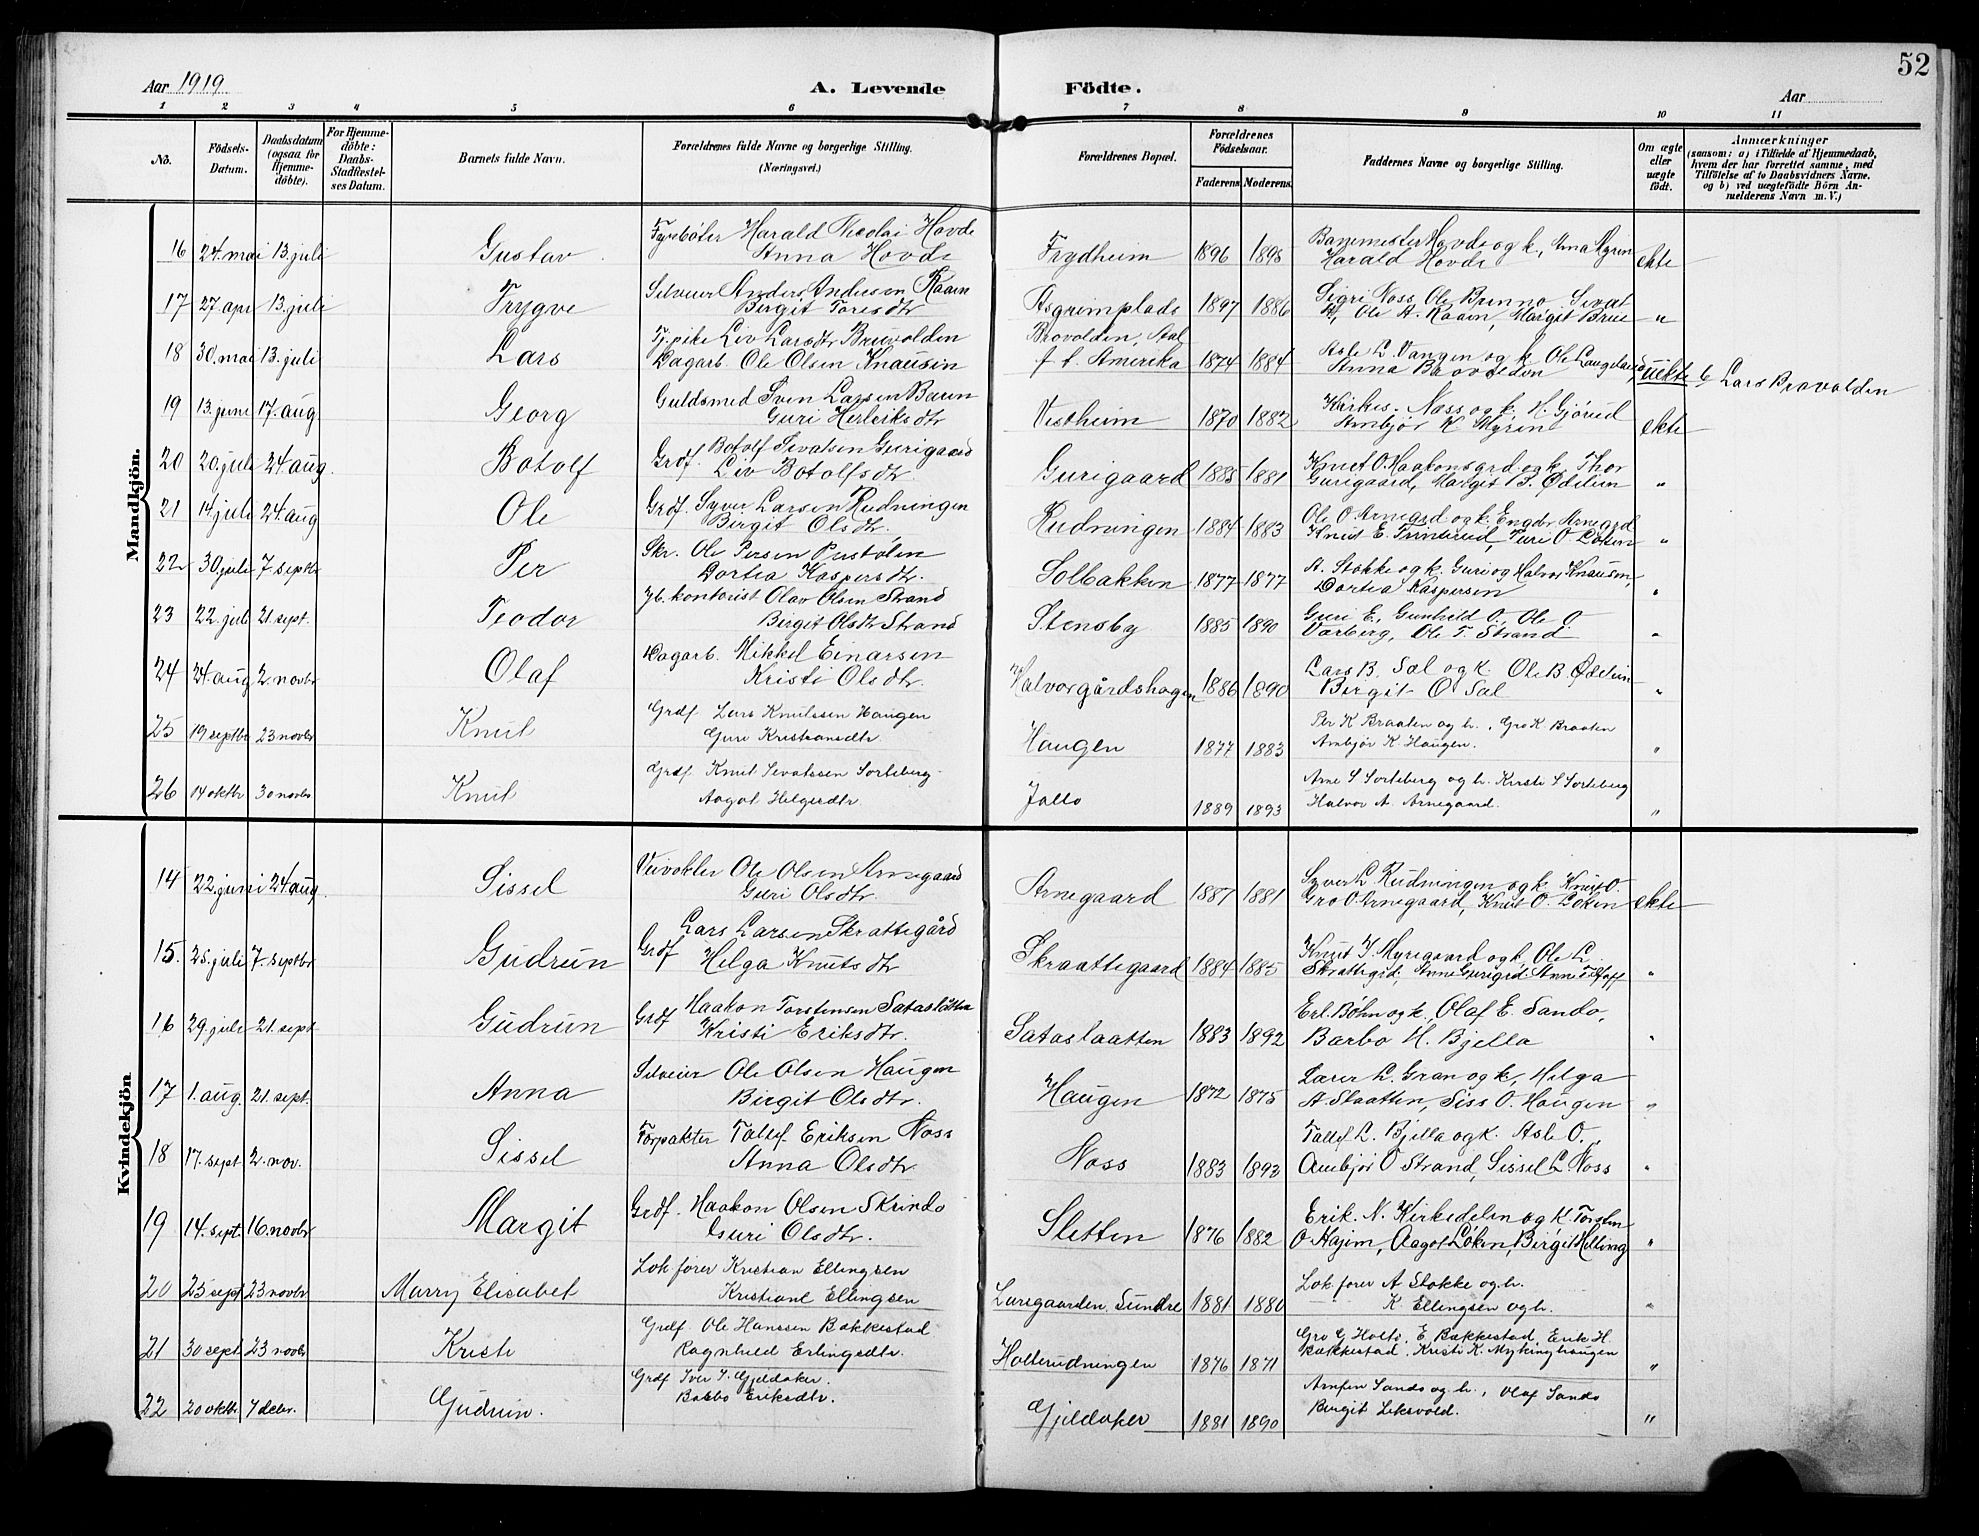 52
Aar 1919
A. Levende Födte.
Aar
1 2 3 4 5 6 7 8 9 10 11
No.
Födsels-Datum.
Daabsdatum (ogsaa for Hjemme-döbte).
For Hjemme-döbte: Daabs-Stadfæstel-ses Datum.
Barnets fulde Navn.
Forældrenes fulde Navne og borgerlige Stilling. (Næringsvei.)
Forældrenes Bopæl.
Forældrenes Födselsaar.
Faderens Moderens.
Faddernes Navne og borgerlige Stilling.
Om ægte eller uægte födt.
Anmærkninger
(saasom: a) i Tilfælde af Hjemmedaab, hvem der har forrettet samme, med Tilföielse af to Daabsvidners Navne, og b) ved uægtefödte Börn An-melderens Navn m. V.)
Mandkjön.
16 24. mai 13. juli Gustav Fyrbøter Harald Nicolai Hovde Anna Hovde Frydheim 1896 1898 Banemester Hovde og k., Anna Myrin Harald Hovde ekte
17 27. apr 13. juli Trygve Selveier Anders Andersen Raaen Birgit Toresdtr Asgrimplads 1897 1886 Sigri Noss, Ole Brenno, Sevat Ole A. Raaen, Margit Brue "
18 30. mai 13. juli Lars Tj.pike Liv Larsdtr Bruvolden Dagarb. Ole Olsen Knausen Brovolden, Aal f. t. Amerika 1874 1884 Asle L. Vangen og k. Ole Anna Brovolden uekte Lars Brovolden
19 13. juni 17. aug Georg Guldsmed Sven Larsen Guri Herleiksdtr Vestheim 1870 1882 Kirkes. Noss og k. H. Gjørud Ambjør K. Myrin ekte
20 20. juli 24. aug. Botolf Grdf. Botolf Sevatsen Gurigaard Liv Botolfsdtr Gurigaard 1885 1881 Knut O. Haakonsgrd og k. Thor Gurigaard, Margit B. Ødelun "
21 14. juli 24. aug Ole Grdf. Syver Larsen Rudningen Birgit Olsdtr. Rudningen 1884 1883 Ole O. Arnegrd og k. Engebr Arnegrd Knut E. Trintrud, Turi O Løken "
22 30. juli 7. septbr Per Skr. Ole Persen Perstølen Dortea Kaspersdtr. Solbakken 1877 1877 A. Stokke og k. Guri og Halvor Knausen, Dortea Kaspersen "
23 22. juli 21. sept. Teodor Jb. kontorist Olav Olsen Strand Birgit Olsdtr Strand Stensby 1885 1890 Guri E., Gunhild O., Ole O Varberg, Ole T. Strand "
24 24. aug 2. novbr Olaf Dagarb. Mikkel Einarsen Kristi Olsdtr. Halvorgårdshagen 1886 1890 Lars B. Sal og k. Ole B. Ødelun Birgit O Sal "
25 19 septbr 23 novbr Knut Grdf. Lars Knutssen Haugen Guri Kristiansdtr Haugen 1877 1883 Per K Braaten og h., Gro K. Braaten Ambjør K. Haugen. "
26 14 oktbr 30 novbr Knut Grdf. Knut Sevatssen Sorteberg. Aagot Helgesdtr Jallo 1889 1893 Arne S Sorteberg og h. Kristi S Sorteberg Halvor A. Arnegaard. "
Kvindekjön
14 22. juni 24. aug. Sissel Veivokter Ole Olsen Arnegaard Guri Olsdtr. Arnegaard 1887 1881 Syver L Rudningen og k. Knut O. Gro O Arnegaard, Knut O. Løken ekte
15. 25. juli 7. septbr Gudrun Grdf Lars Larsen Skrattegård Helga Knutsdtr Skraattegaard 1884 1885 Knut Y. Myregaard og k. Ole L. Skrattegrd, Anne Gurigrd, Anne T. Hoff "
16 29. juli 21. sept Gudrun Grdf Haakon Torstensen Sataslåtten Kristi Eriksdtr. Sataslaatten 1883 1892 Erl. Bøhn og k., Olaf E. Sando, Barbo H. Bjella "
17 1. aug. 21. sept. Anna Selveier Ole Olsen Haugen Birgit Olsdtr. Haugen 1872 1875 Lærer L. Gran og k., Helga A. Slaatten, Siss O. Haugen "
18 17. sept 2. nov. Sissel Forpakter Tollef Eriksen Noss Anna Olsdtr Noss 1883 1892 Tollef L. Bjella og k. Asle O., Ambjør O Strand, Sissel L. Noss "
19 14. sept. 16. novbr Margit Grdf. Haakon Olsen Skrindo Guri Olsdtr. Sletten 1876 1882 Erik. N. Kirkedelen og k. Torsten O. Hajem, Aagot Løken, Birgit Helling "
20 25 sept 23 novbr Marry Elisabet Lok fører Kristian Ellingsen Kristiane Ellingsen Larsgaarden, Sundre 1881 1880 Lok fører A Stokke og h. K. Ellingsen og h. "
21 30 sept 23 novbr Kristi Grdf. Ole Hanssen Bakkestad Ragnhild Erlingsdtr. Holterudningen 1876 1871 Gro G Holto, E. Bakkestad, Erik H. Bakkestad, Kristi K. Mykinghaugen "
22 20 oktbr. 7 debr. Gudrun. Grdf Iver I. Gjeldaker. Babbo Eriksdtr. Gjeldaker 1881 1890 Arnfin Sando og h., Olaf Sando Birgit Leksvold. "